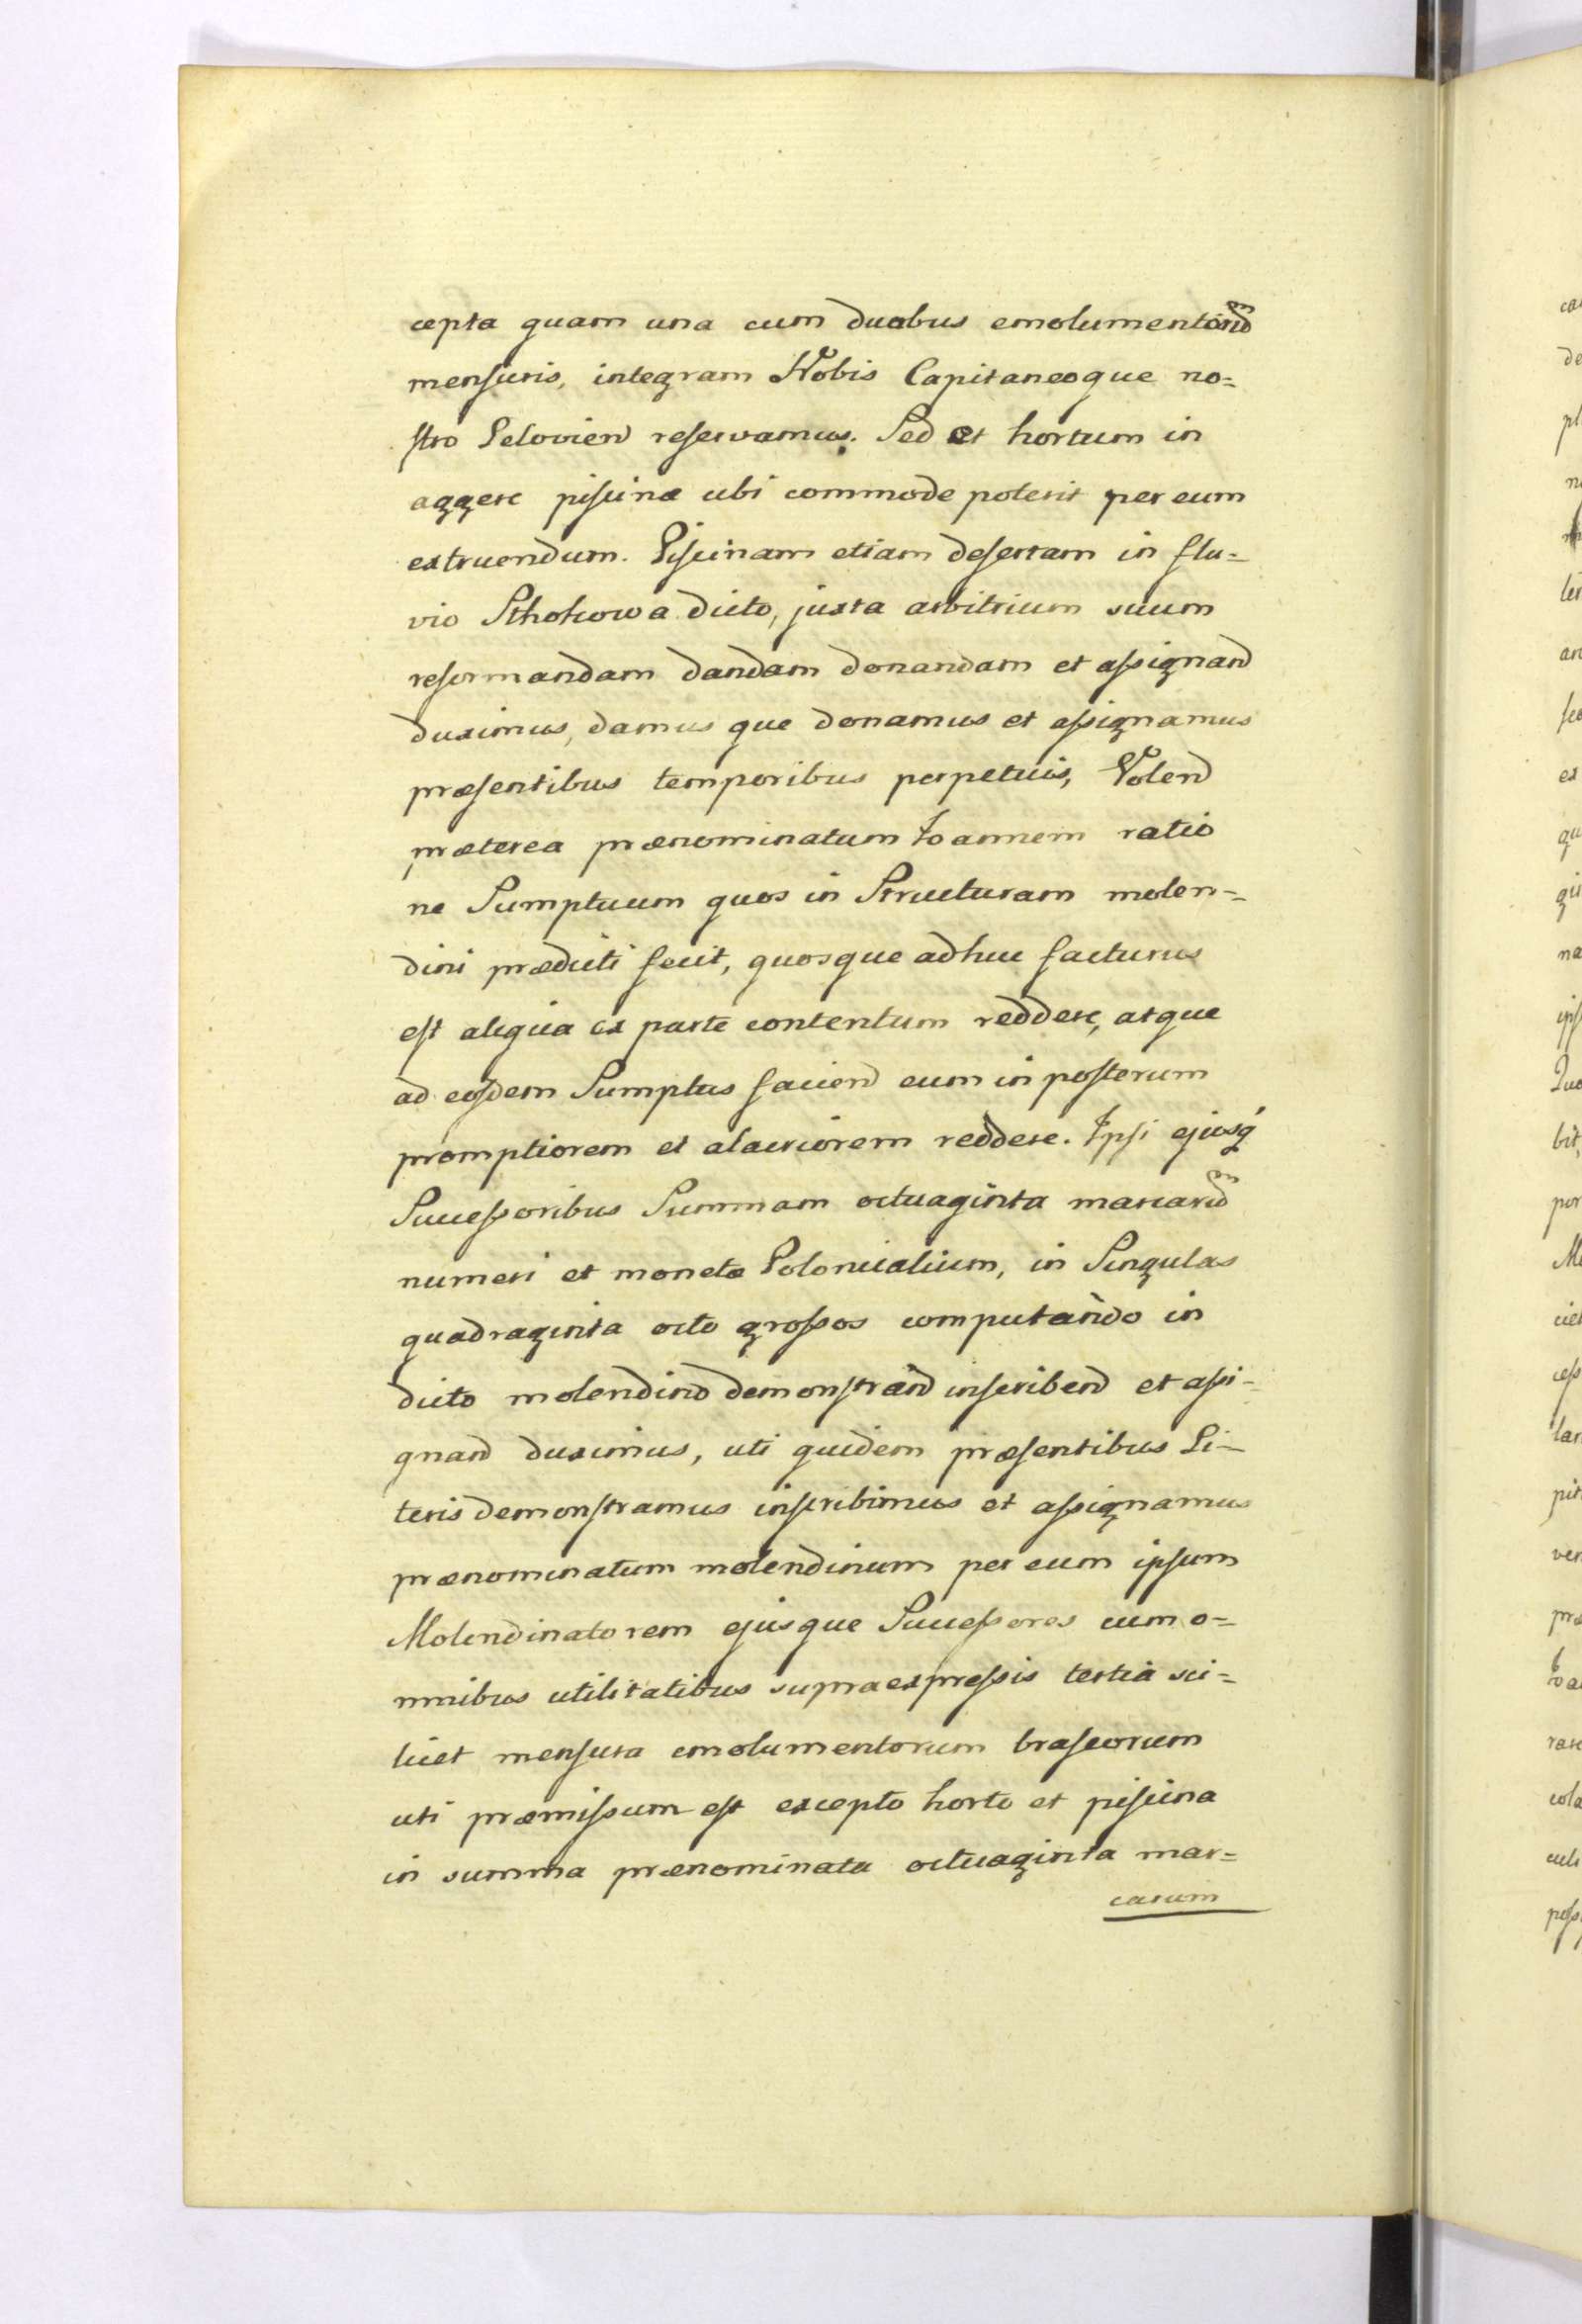 cepta quam una cum duobus emolumentorum
mensuris, integram Nobis Capitaneoque no=
stro Pelovien reservamus. Sed et hortum in
aggere piscinæ ubi commode poterit per eum
extruendum. Piscinam etiam desertam in flu=
vio Sthokowa dicto, juxta arbitrium suum
reformandam dandam donandam et assignand
duximus, damus que donamus et assignamus
præsentibus temporibus perpetuis, Volend
præterea prænominatum Joannem ratio
ne Sumptuum quos in Structuram molen=
dini prædicti fecit, quosque adhuc facturus
est aliqua ex parte contentum reddere, atque
ad eosdem Sumptus faciend eum in posterum
promptiorem et alacriorem reddere. Ipsi ejusq
Successoribus Summam octuaginta marcarum
numeri et monetæ Polonicalium, in Singulas
quadraginta octo grossos computando in
dicto molendino demonstrand inscribend et assi=
gnand duximus, uti quidem præsentibus Li=
teris demonstramus inscribimus et assignamus
prænominatum molendinum per eum ipsum
Molendinatorem ejusque Successores cum o=
mnibus utilitatibus supraexpressis tertia sci=
licet mensura emolumentorum braseorum
uti præmissum est excepto horto et piscina
in summa prænominata octuaginta mar=
carum